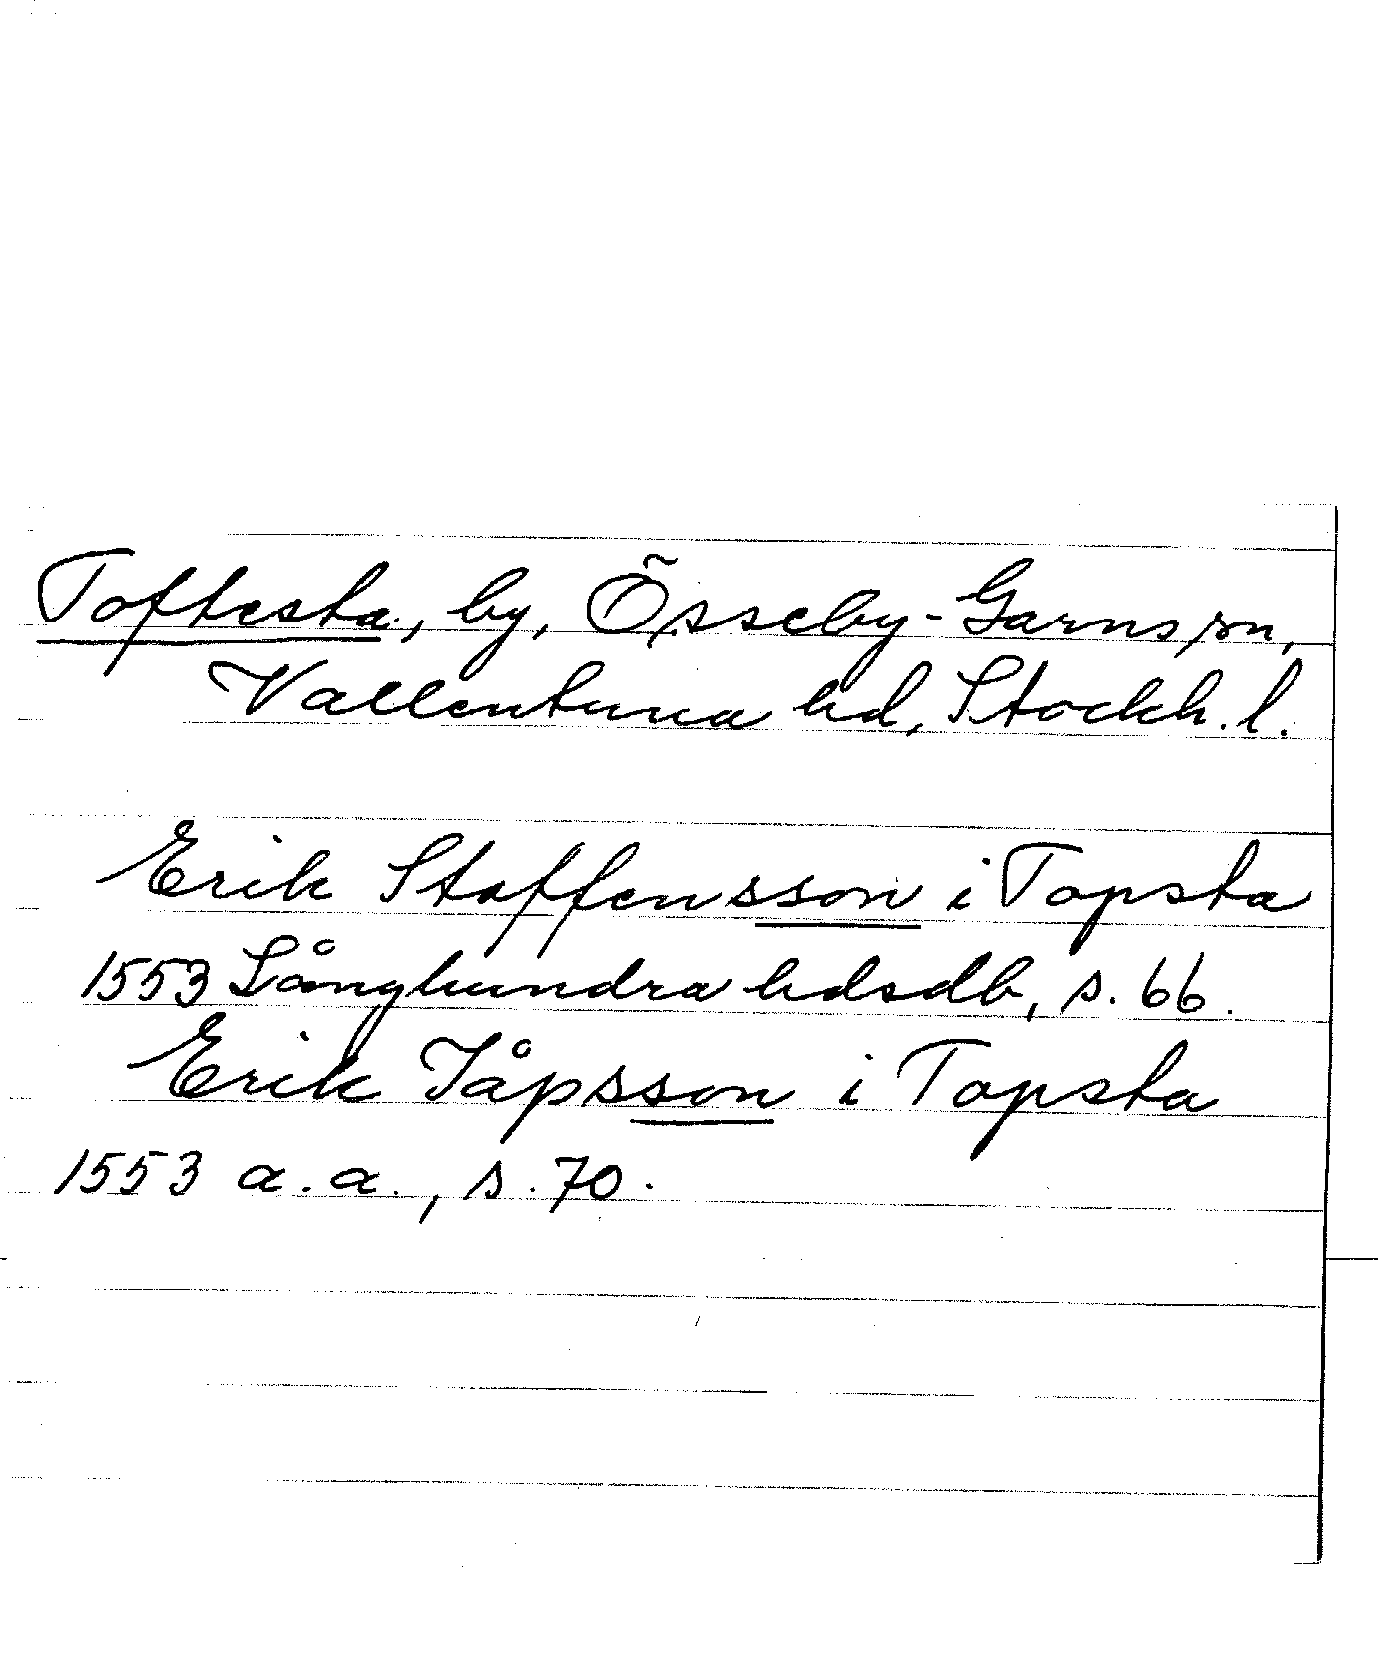 Toftesta, by, Össeby-Garns sn,
Vallentuna hd, Stockh. l.
Erik Staffensson i Topsta
1553 Långhundra hdsdb, s. 66.
Erik Jåpsson i Topsta
1553 a.a., s. 70.